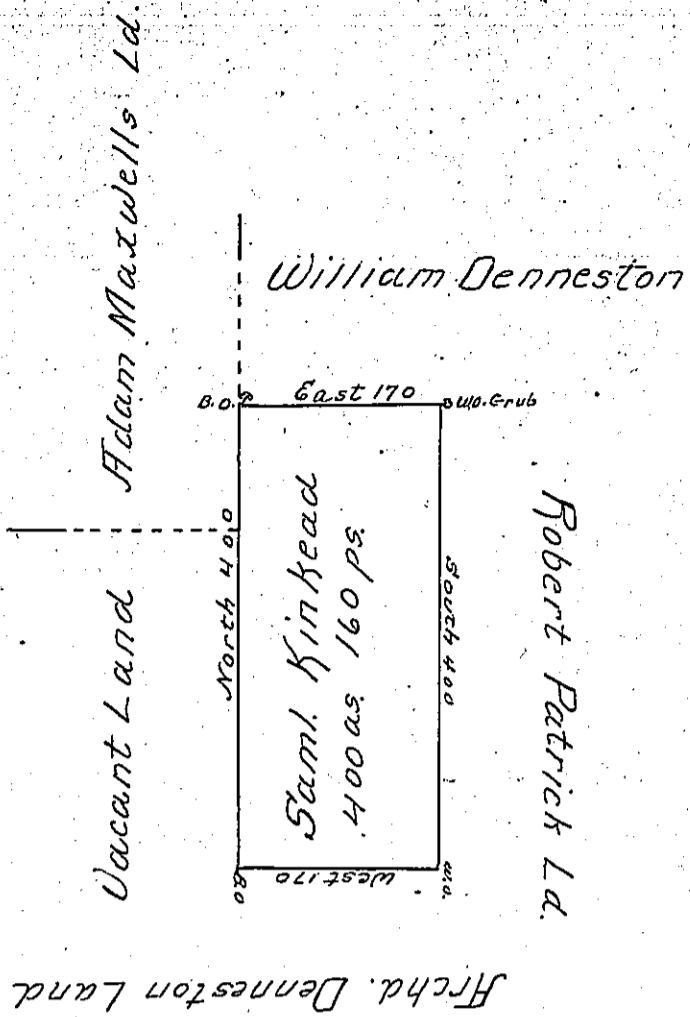 Adam Maxwells Ld.
William Denneston
B.O.
East 170
W.O. Grub
Vacant Land
North 400
Saml. Kinkead
400 as. 160 ps.
South 400
Robert Patrick Ld.
B.O.
West 170
W.O.
Archd. Denneston Land